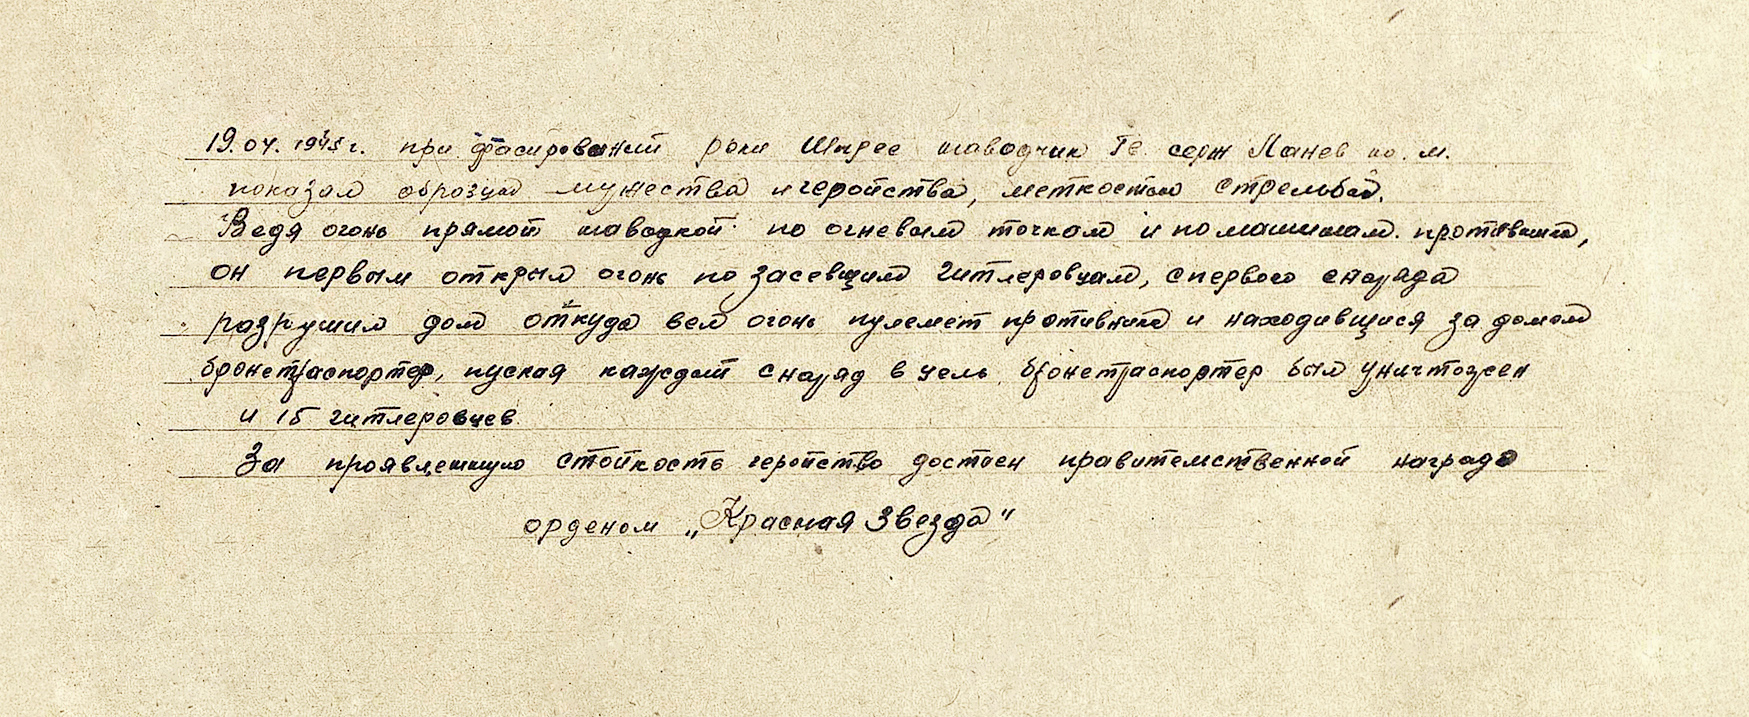 19.04.1945 г. при фасировании реки Шпрее наводчик Гв серж Манев
показал образцы мужества и геройства, меткостью стрельбы.
Ведя огонь прямой наводкой по огневым точкам и по машинам противника,
он первым открыл огонь по засевщим гитлеровцам, с первого снаряда
разрушил дом откуда вел огонь пулемет противника и находивщися за домом
бронетраспортер, пуская каждый снаряд в цель. бронетраспортер был уничтожен
и 15 гитлеровцев
За проявленную стойкость геройство достоен правителственной награде
орденом „Красная Звезда"